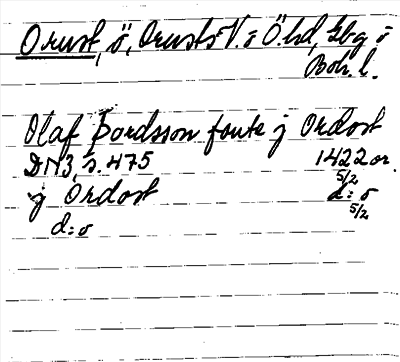 Orust, ö, Orusts V. o Ö. hd, Gbg o
Boh. l.
Olaf Þordsson foute j Ordost
DN 3, s. 475 1422 or.
5/2
j Ordost d:o
5/2
d:o